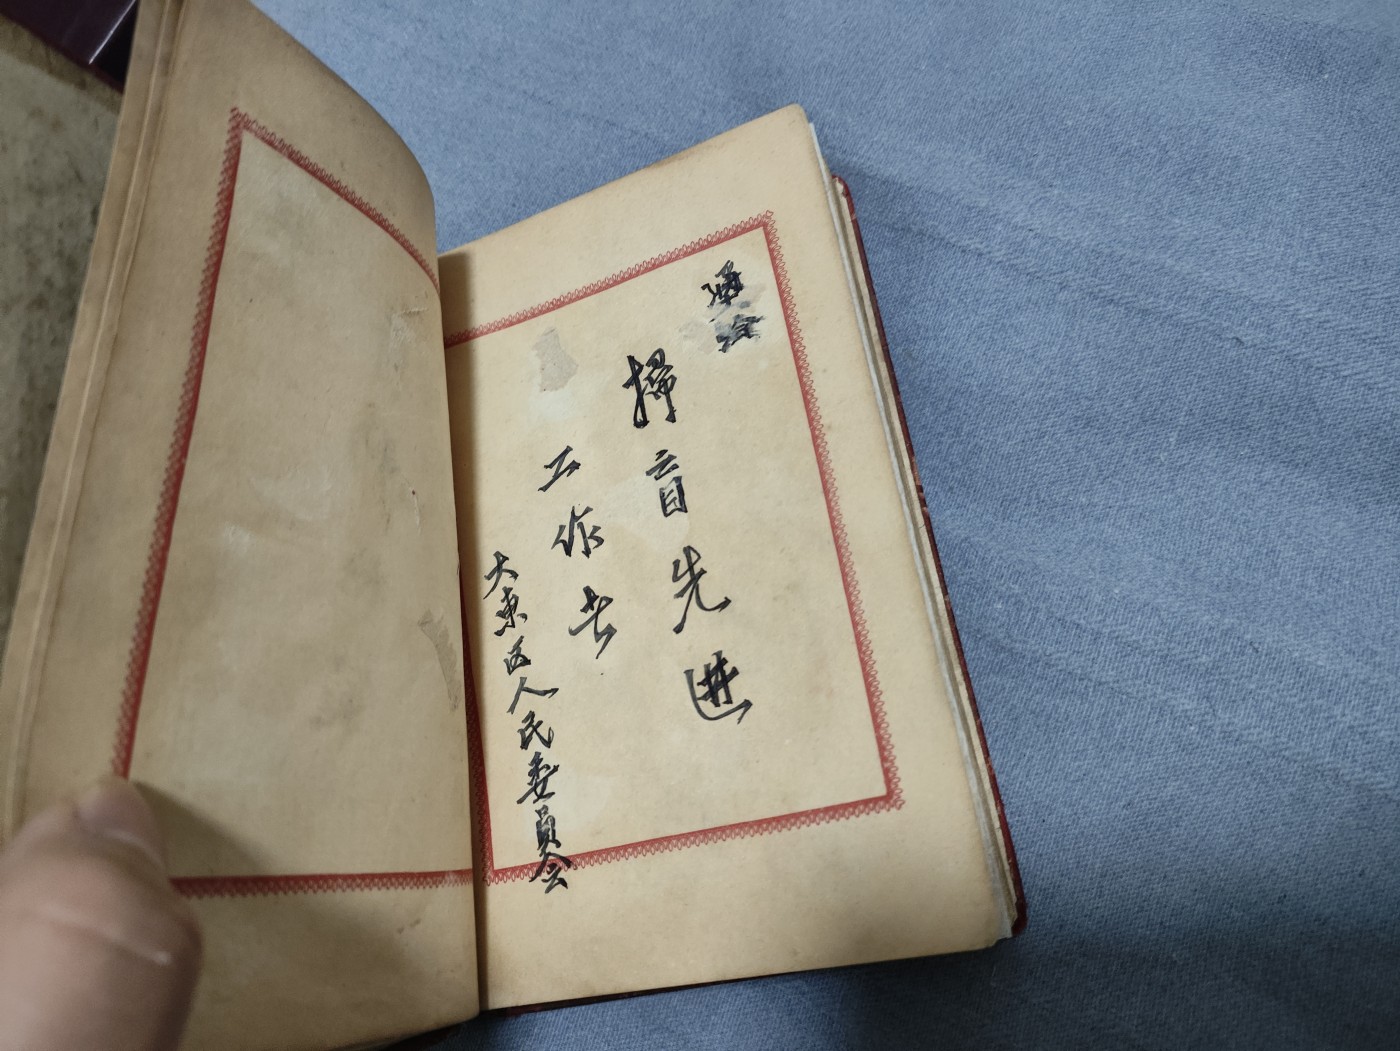 掃盲先進
工作者
大東区人民委員会